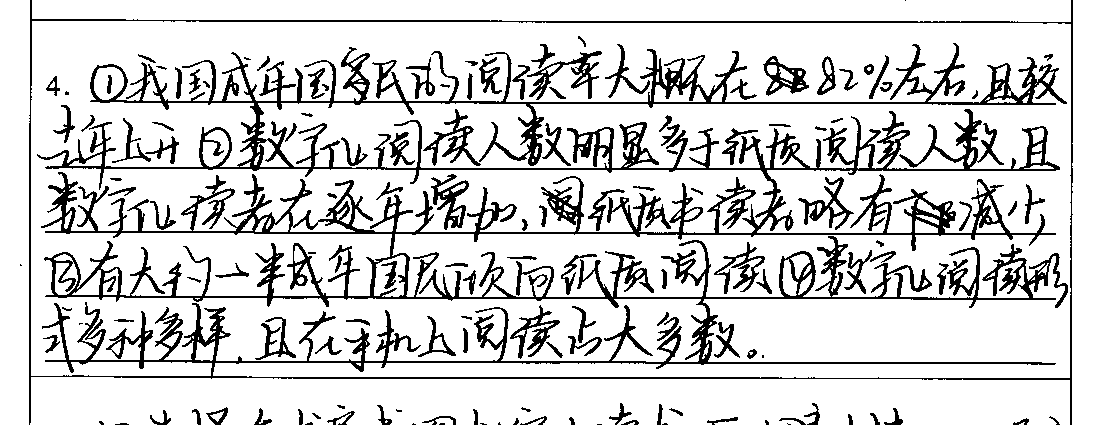 4. ①我国成年国民的阅读率大概在82%左右,且较
去年上升②数字化阅读人数明显多于纸质阅读人数,且
数字化读者在逐年增加,纸质书读者略有减少
③有大约一半成年国民倾向纸质阅读④数字化阅读形
式多种多样,且在手机上阅读占大多数。